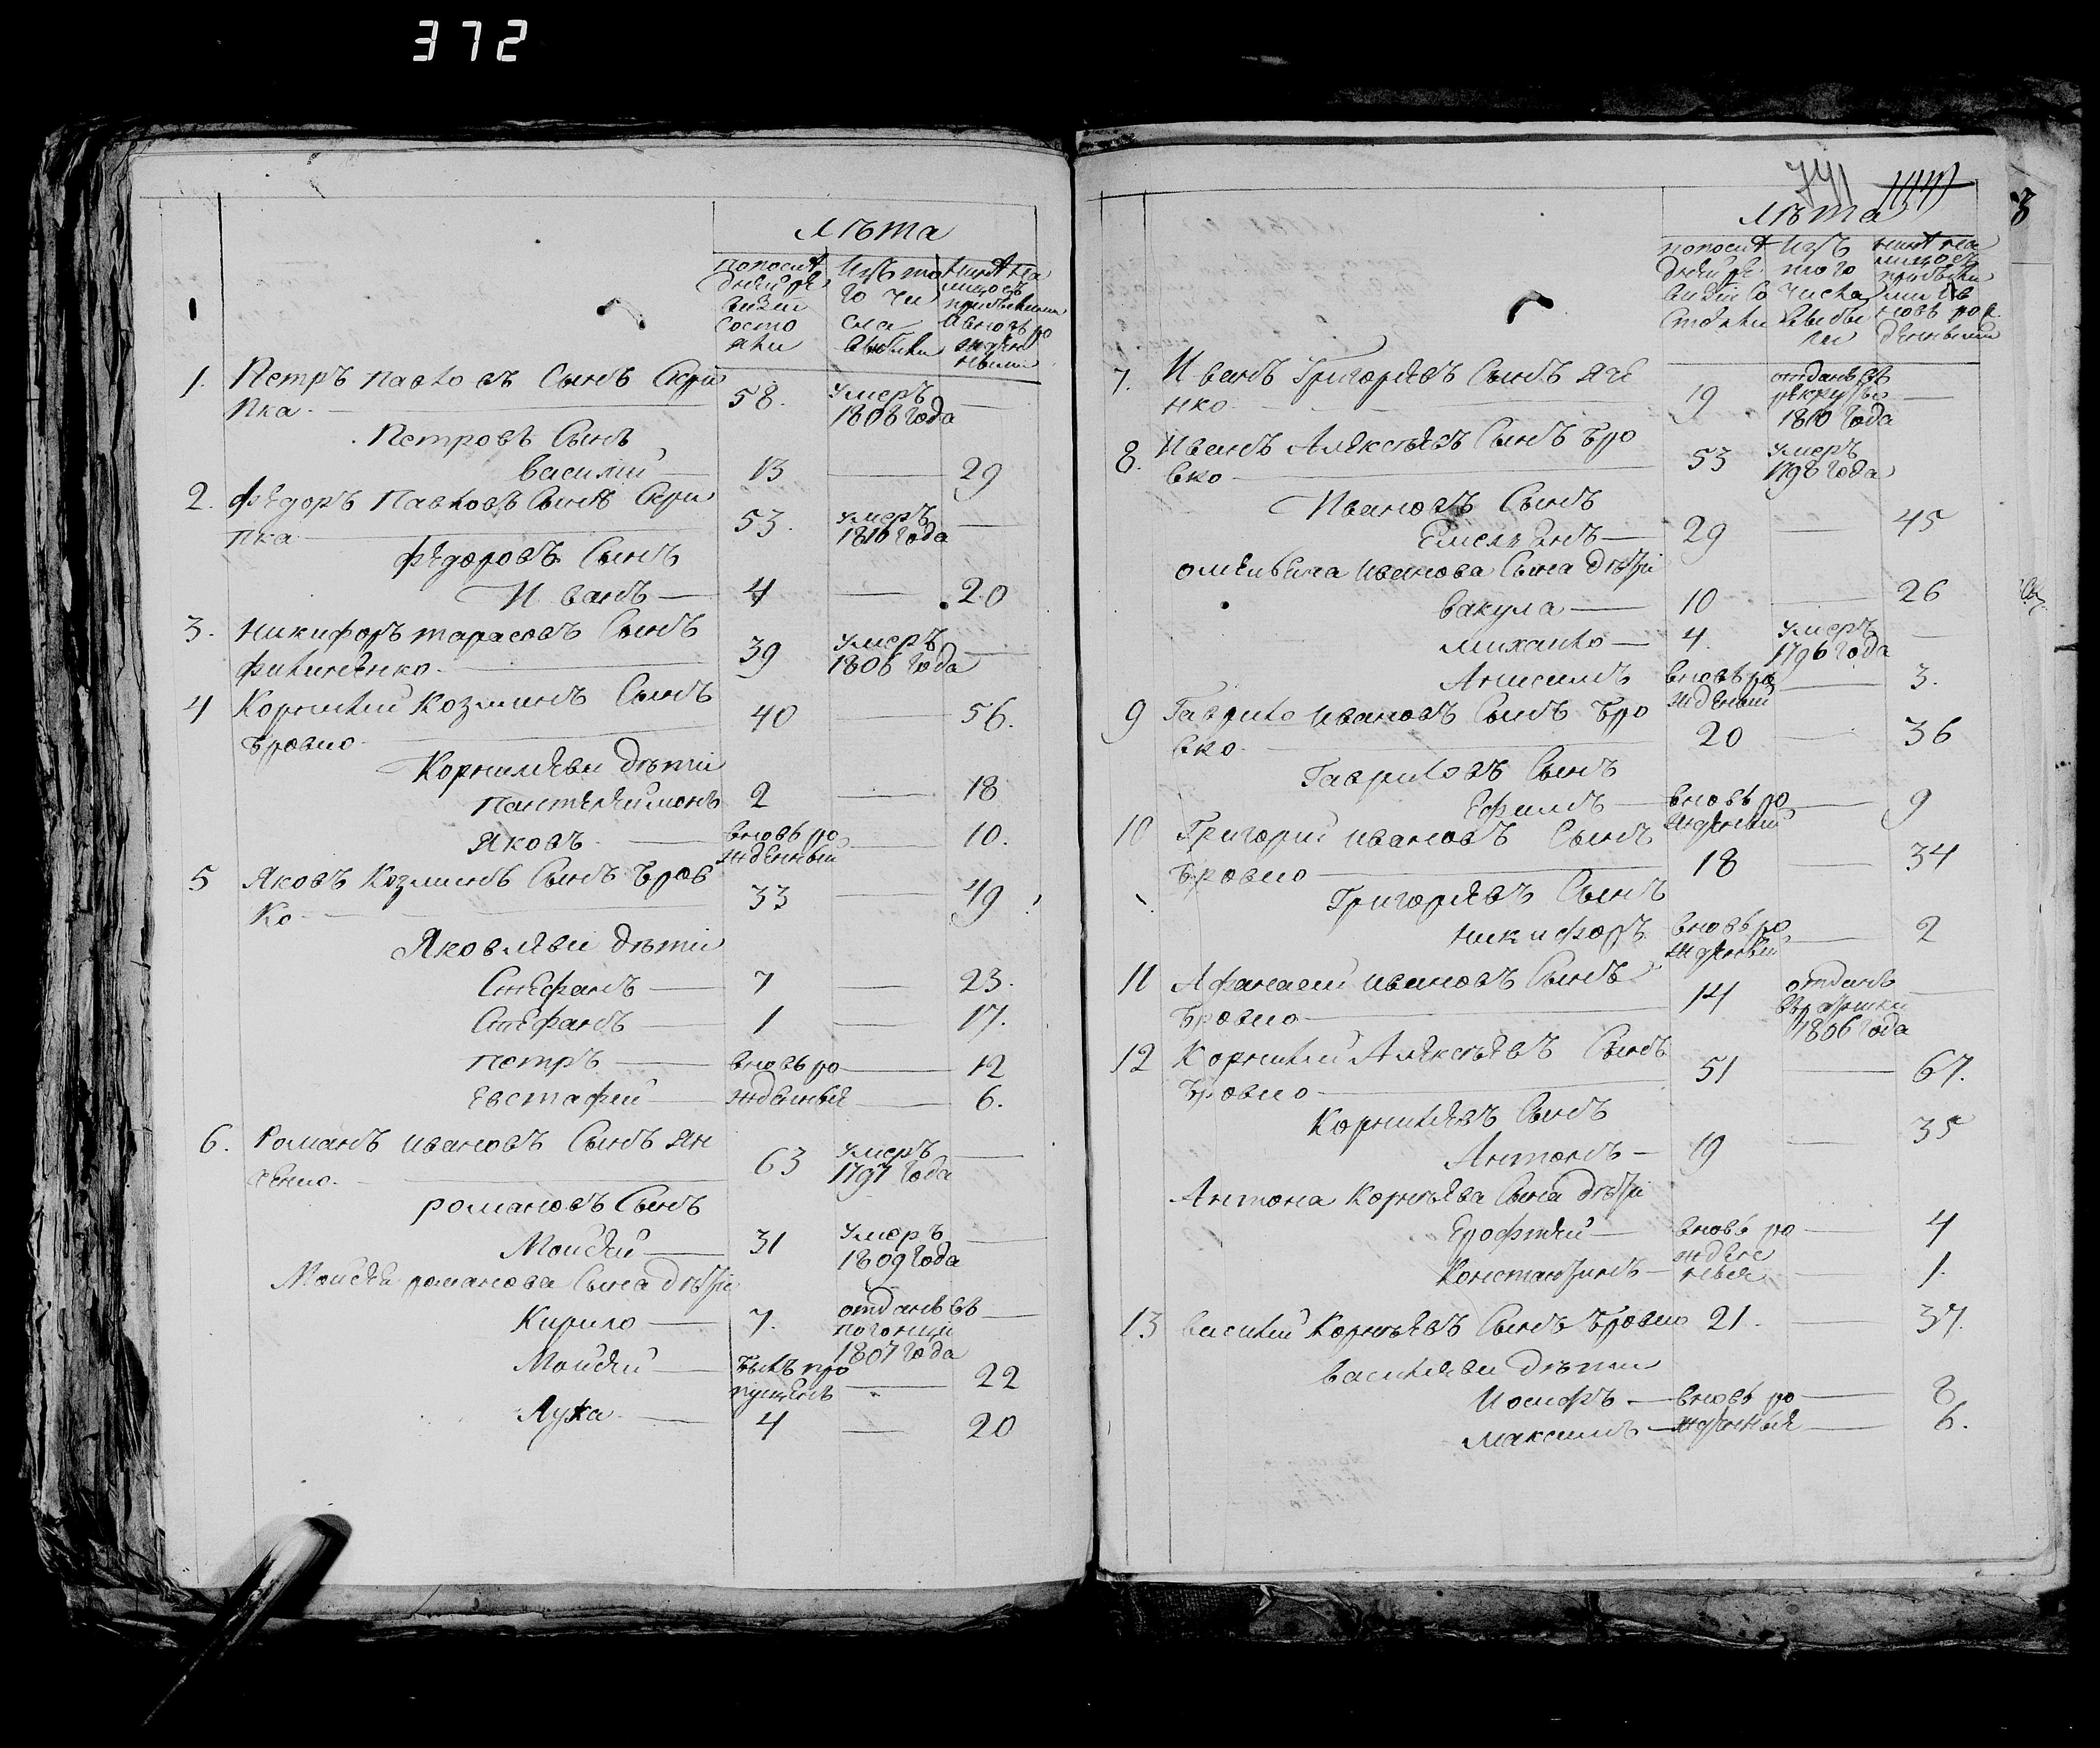 372
Лѣта
попосле
дней ре
визии
состо
яли
изъ то
го чи
сла
выбыли
ныне на
лицо съ
прибылыми
и вновь ро
жден
ными
1. Петръ Павловъ Сынъ Скри
пка 58. умеръ 1808 года —
Петровъ Сынъ
Василий — 13 — 29
2. Федоръ Павловъ Сынъ Скри
пка 53. умеръ 1810 года —
Федоровъ Сынъ
Иванъ — 4 — 20
3. Никифоръ Тарасовъ Сынъ
39 умеръ 1806 года —
4 Корнилий Козминъ Сынъ
Бровко 40 — 56.
Корнилиеви дѣти
Пантелеймонъ 2 — 18
Яковъ — вновь ро
жденный — 10.
5 Яковъ Козминъ Сынъ Бров
ко 33 — 49
Яковлеви дѣти
Стефанъ — 7 — 23.
Стефанъ — 1 — 17.
Петръ — вновь ро — 12
Евстафий — жденныя — 6.
6. Романъ Ивановъ Сынъ Ян
ченко 63 умеръ 1797 года —
Романовъ Сынъ
Моисей — 31 умеръ 1809 года —
Моисея Романова Сына дѣти
Кирило — 7. отданъ въ
погонци
1807 года —
Моисей — былъ про
пущенъ — 22
Лука — 4 — 20
741
3
Лѣта
попосле
дней ре
визии со
стояли
изъ
того
числа
выбы
ли
ныне на
лицо съ
прибылы
ми и в
новь рож
денными
7. Иванъ Григорьевъ Сынъ Яче
нко 19 отданъ въ
рекруты
1810 года —
8. Иванъ Алексѣевъ Сынъ Бро
вко 53 умеръ
1798 года
Ивановъ Сынъ
Емельянъ — 29 — 45
Омельяна Иванова Сына дѣти
Вакула — 10 — 26
Михайло — 4. умеръ
1796 года —
Анисимъ вновь ро
жденный — 3.
9 Гаврило Ивановъ Сынъ Бро
вко 20 — 36
Гавриловъ Сынъ
Ефимъ — вновь ро
жденный — 9
10 Григорий Ивановъ Сынъ
Бровко 18 — 34
Григорьевъ Сынъ
Никифоръ вновь ро
жденный — 2
11 Афанасий Ивановъ Сынъ
Бровко 14 отданъ
1806 года —
12 Корнилий Алексѣевъ Сынъ
Бровко 51 — 67.
Корнилиевъ Сынъ
Антонъ — 19 — 35
Антона Корнѣева Сына дѣти
Ерофтей — вновь ро — 4
Константинъ — жден
ныя — 1.
13 Василий Корнѣевъ Сынъ Бровко 21. — 37.
Василиеви дѣти
Иосифъ — вновь ро — 8
Максимъ — жденныя — 6.